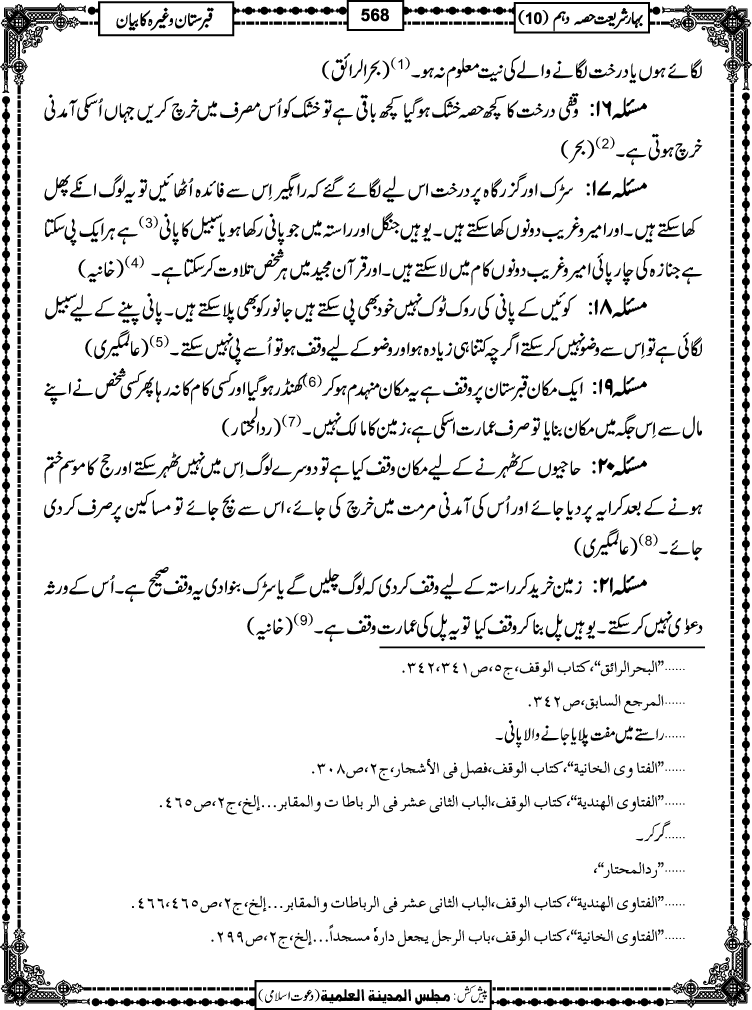 بہارِشریعت حصہ دہم (10)
568
قبرستان وغیرہ کا بیان
لگائے ہوں یا درخت لگانے والے کی نیت معلوم نہ ہو۔(1) (بحرالرائق)
مسئلہ ۱۶: وقفی درخت کا کچھ حصہ خشک ہوگیا کچھ باقی ہے تو خشک کو اُس مصرف میں خرچ کریں جہاں اُسکی آمدنی
خرچ ہوتی ہے۔(2) (بحر)
مسئلہ ۱۷: سڑک اور گزرگاہ پر درخت اس لیے لگائے گئے کہ راہگیر اِس سے فائدہ اُٹھائیں تو یہ لوگ انکے پھل
کھاسکتے ہیں۔ اور امیر و غریب دونوں کھاسکتے ہیں۔ یوہیں جنگل اور راستہ میں جو پانی رکھا ہو یا سبیل کا پانی(3) ہے ہر ایک پی سکتا
ہے جنازہ کی چارپائی امیر و غریب دونوں کام میں لاسکتے ہیں۔ اور قرآن مجید میں ہر شخص تلاوت کرسکتا ہے۔ (4) (خانیہ)
مسئلہ ۱۸: کوئیں کے پانی کی روک ٹوک نہیں خود بھی پی سکتے ہیں جانور کو بھی پلاسکتے ہیں۔ پانی پینے کے لیے سبیل
لگائی ہے تو اِس سے وضو نہیں کرسکتے اگرچہ کتنا ہی زیادہ ہو اور وضو کے لیے وقف ہو تو اُسے پی نہیں سکتے۔(5) (عالمگیری)
مسئلہ ۱۹: ایک مکان قبرستان پر وقف ہے یہ مکان منہدم ہو کر(6) کھنڈر ہوگیا اور کسی کام کا نہ رہا پھر کسی شخص نے اپنے
مال سے اِس جگہ میں مکان بنایا تو صرف عمارت اسکی ہے، زمین کا مالک نہیں۔(7) (ردالمحتار)
مسئلہ ۲۰: حاجیوں کے ٹھہرنے کے لیے مکان وقف کیا ہے تو دوسرے لوگ اِس میں نہیں ٹھہر سکتے اور حج کا موسم ختم
ہونے کے بعد کرایہ پر دیا جائے اور اُس کی آمدنی مرمت میں خرچ کی جائے، اس سے بچ جائے تو مساکین پر صرف کر دی
جائے۔(8) (عالمگیری)
مسئلہ ۲۱: زمین خرید کر راستہ کے لیے وقف کر دی کہ لوگ چلیں گے یا سڑک بنوا دی یہ وقف صحیح ہے۔ اُس کے ورثہ
دعوٰی نہیں کرسکتے۔ یوہیں پل بنا کر وقف کیا تو یہ پل کی عمارت وقف ہے۔(9) (خانیہ)
......”البحرالرائق“،کتاب الوقف،ج٥،ص٣٤١،٣٤٢.
......المرجع السابق،ص٣٤٢.
......راستے میں مفت پلایا جانے والا پانی۔
......”الفتاوی الخانیة“،کتاب الوقف،فصل فی الأشجار،ج٢،ص٣٠٨.
......”الفتاوی الهندیة“،کتاب الوقف،الباب الثانی عشر فی الرباطات والمقابر...إلخ،ج٢،ص٤٦٥.
......گرکر۔
......”ردالمحتار“،
......”الفتاوی الهندیة“،کتاب الوقف،الباب الثانی عشر فی الرباطات والمقابر...إلخ،ج٢،ص٤٦٥،٤٦٦.
......”الفتاوی الخانیة“،کتاب الوقف،باب الرجل یجعل دارہٗ مسجداً...إلخ،ج٢،ص٢٩٩.
پیش کش: مجلس المدینة العلمیة (دعوتِ اسلامی)